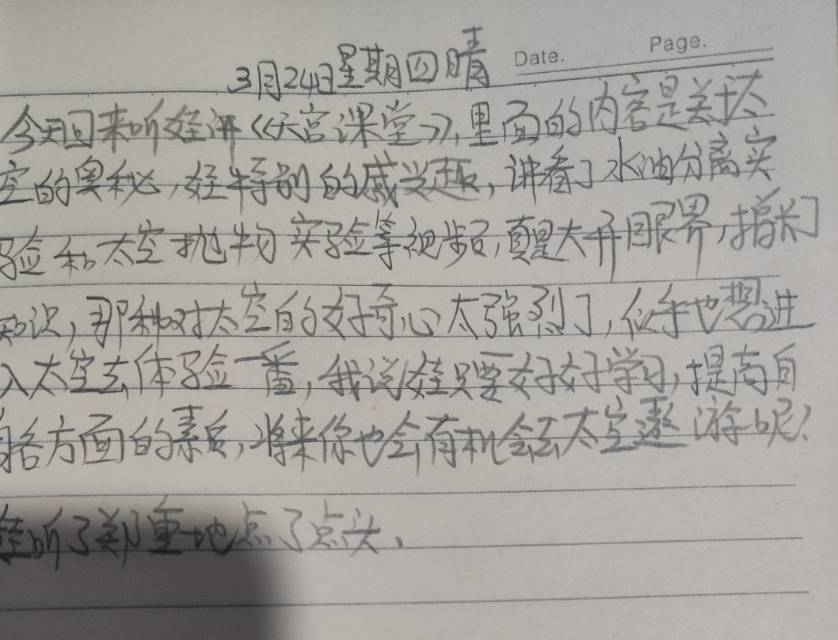 Date. Page.
3月24日星期四晴
今天回来听娃讲《天宫课堂》,里面的内容是关于太
空的奥秘,娃特别的感兴趣,讲看了水油分离实
验和太空抛物实验等视频,真是大开眼界,增长了
知识,那种对太空的好奇心太强烈了,似乎也想进
入太空去体验一番,我说娃只要好好学习,提高自
身各方面的素质,将来你也会有机会去太空遨游呢?
娃听了郑重地点了点头、